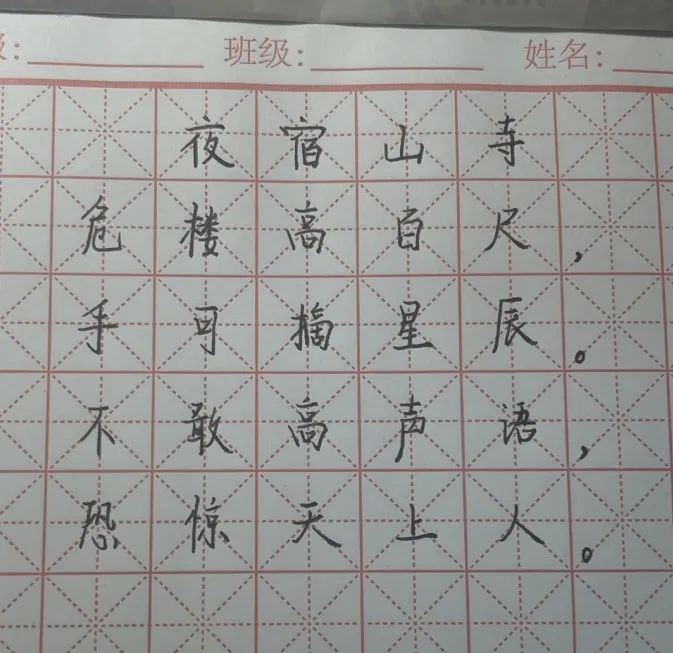 级: 班级: 姓名:
夜宿山寺
危楼高百尺，
手可摘星辰。
不敢高声语，
恐惊天上人。